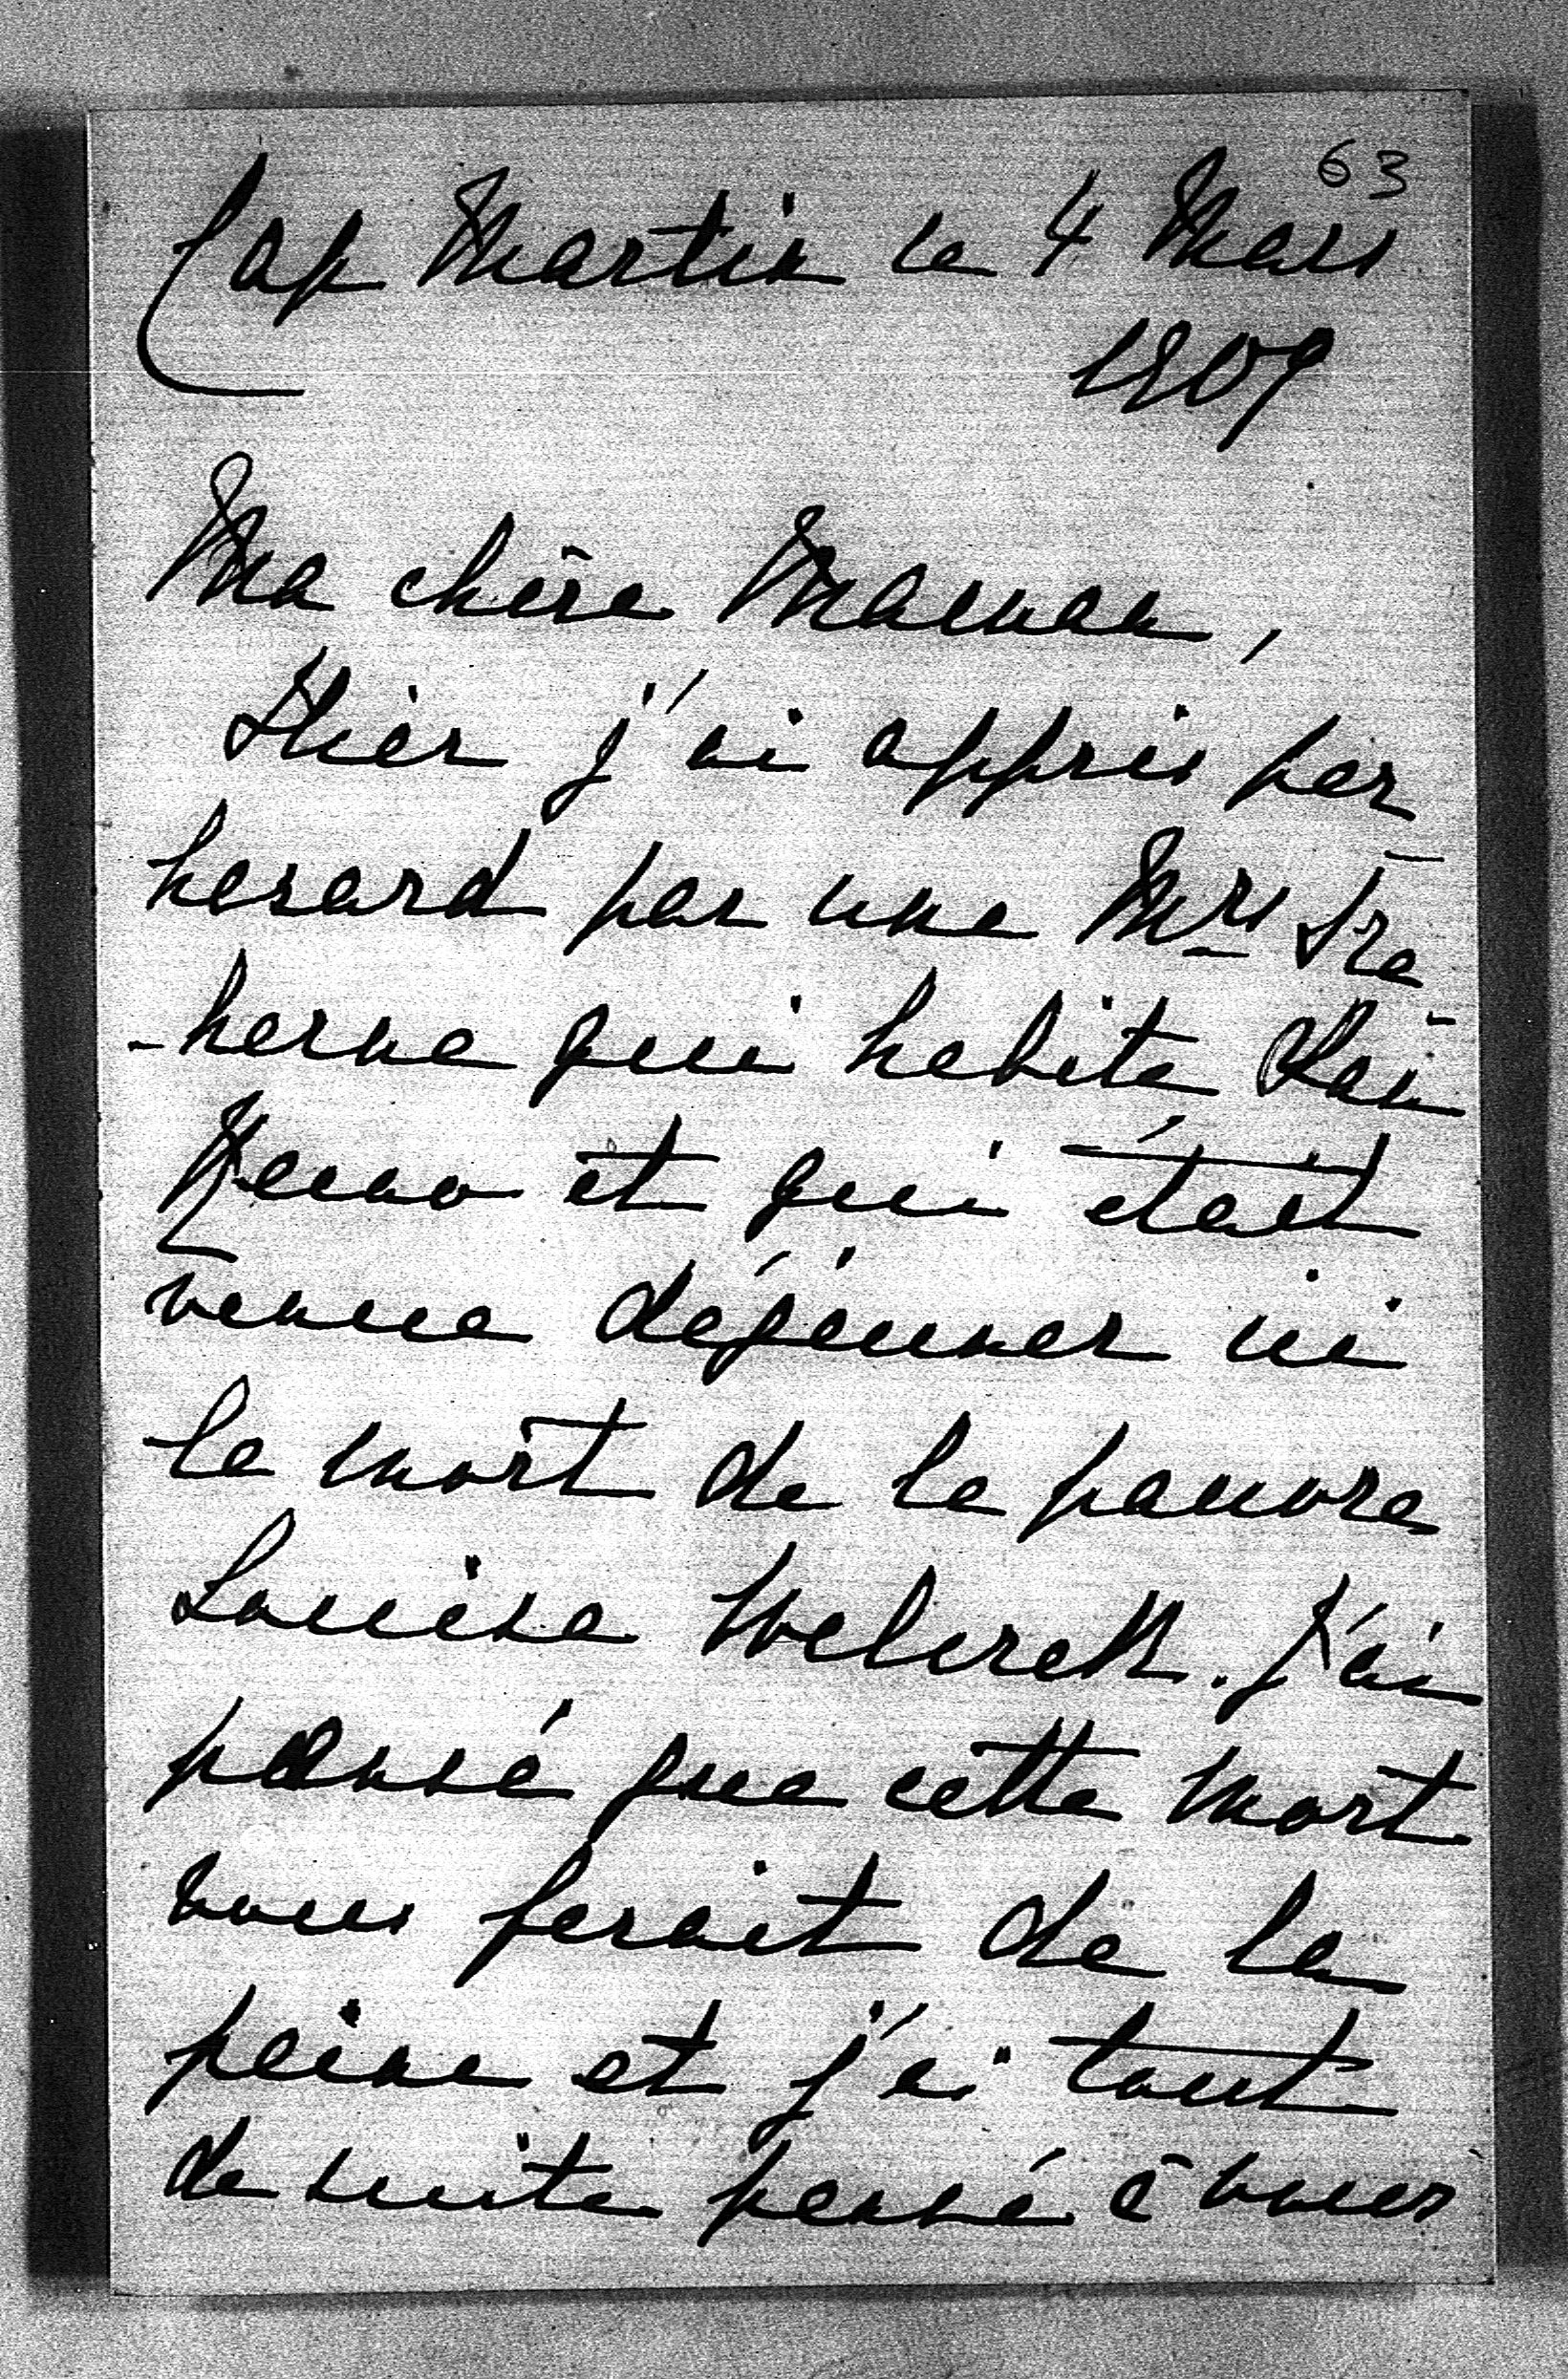 63
Cap Martin le 4 Mars
1909
Ma chère Maman,
Hier j'ai appris par
hasard par une Mrs Tre
-herne qui habite San
Remo et qui était
venue déjeuner ici
la mort de la pauvre
Louisa J'ai
pensé que cette mort
vous ferait de la
peine et j'ai tout
de suite pensé à vous